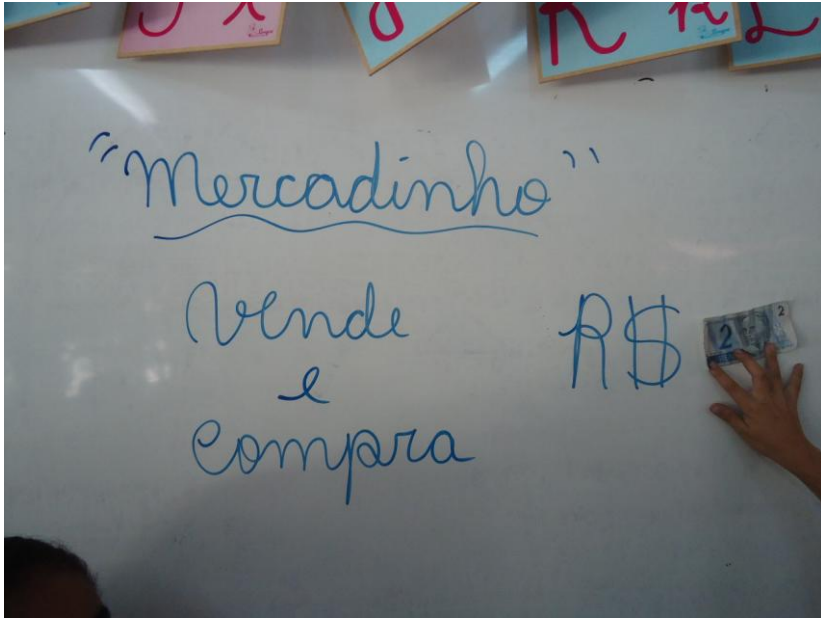 J j
J
K k L
"Mercadinho"
Vende
e
Compra
R$
2 2